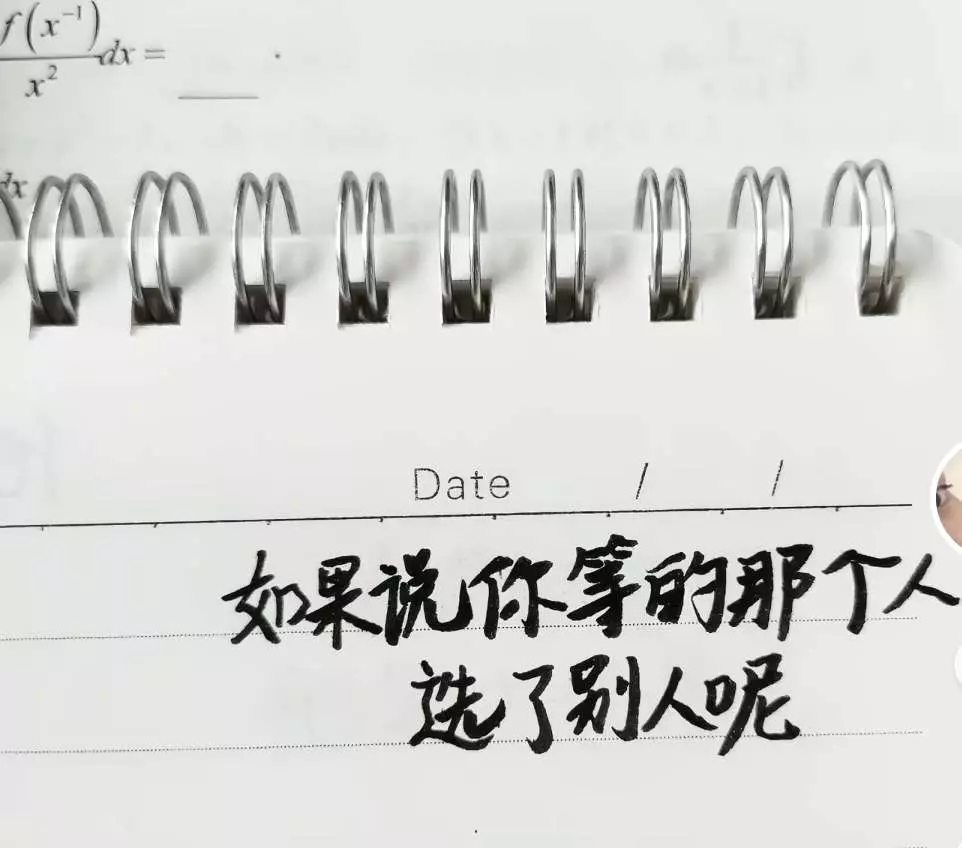 f(x⁻¹)/x² dx = ____ .
dx
Date / /
如果说你等的那个人
选了别人呢